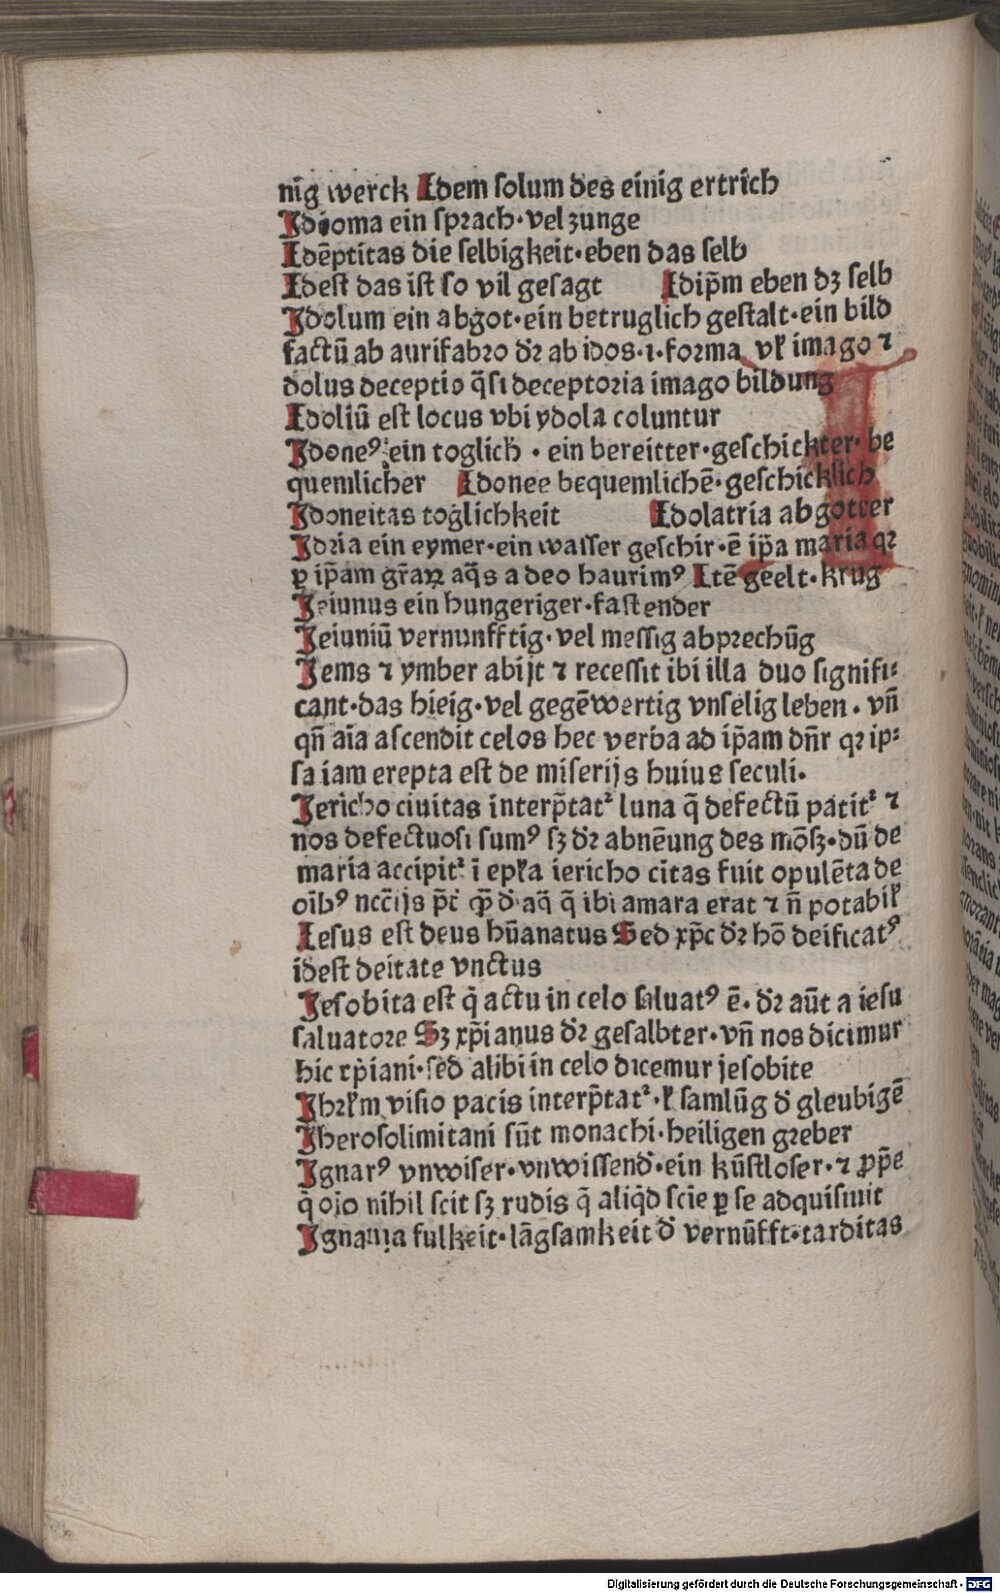 nig werck Idem ſolum des einig ertrich
Idioma ein ſprach·vel zunge
Idēptitas die ſelbigkeit·eben das ſelb
Ideſt das iſt ſo vil geſagt Idip̄m eben dꝫ ſelb
Idolum ein abgot·ein betruglich geſtalt·ein bild
factū ab aurifabro dꝛ̄ ab idos·i·forma vł imago ⁊
dolus deceptio q̄ſi deceptoꝛia imago bildung
Idoliū eſt locus vbi ydola coluntur
Idoneꝰ ein toglich · ein bereitter·geſchickter·be
quemlicher Idonee bequemlichē·geſchicklich
Idoneitas toglichkeit Idolatria abgotter
Idria ein eymer·ein waſſer geſchir·ē ip̄a maria qꝛ
ꝑ ip̄am gr̄aꝝ aq̄s a deo haurimꝰ Itē geelt·krug
Ieiunus ein hungeriger·faſtender
Ieiuniū vernunfftig·vel meſſig abpꝛechūg
Iems ⁊ ymber abijt ⁊ receſſit ibi illa duo ſignifi⸗
cant·das hieig·vel gegēwertig vnſelig leben·vn̄
qn̄ aīa aſcendit celos hec verba ad ip̄am dn̄r qꝛ ip⸗
ſa iam erepta eſt de miſerijs huius ſeculi.
Iericho ciuitas interp̄tatᷣ luna q̄ defectū patitᷣ ⁊
nos defectuoſi ſumꝰ ſꝫ dꝛ̄ abnēung des mōſꝫ·dū de
maria accipitᷣ ī epłа iericho cītas fuit opulēta de
oīb⁹ neccīijs p̄ċ ꝙ̄ đ aq̄ q̄ ibi amara erat ⁊ n̄ potabił
Ieſus eſt deus hūanatus Sed xp̄c dꝛ̄ hō deificatꝰ
ideſt deitate vnctus
Ieſobita eſt q̄ actu in celo ſaluatꝰ ē·dꝛ̄ aūt a ieſu
ſaluatoꝛe Sꝫ xp̄ianus dꝛ̄ geſalbter·vn̄ nos dicimur
hic xp̄iani·ſed alibi in celo dicemur jeſobite
Ihrłm viſio pacis interp̄tatᷣ·ł ſamlūg đ gleubigē
Iheroſolimitani ſūt monachi·heiligen greber
Ignarꝰ vnwiſer·vnwiſſend·ein kūſtloſer·⁊ ꝓp̄e
q̄ oīo nihil ſcit ſꝫ rudis q̄ aliq̄d ſcīe ꝑ ſe adquiſiuit
Ignauia fulkeit·lāgſamkeit đ vernūfft·tarditas
Digitalisierung gefördert durch die Deutsche Forschungsgemeinschaft - DFG